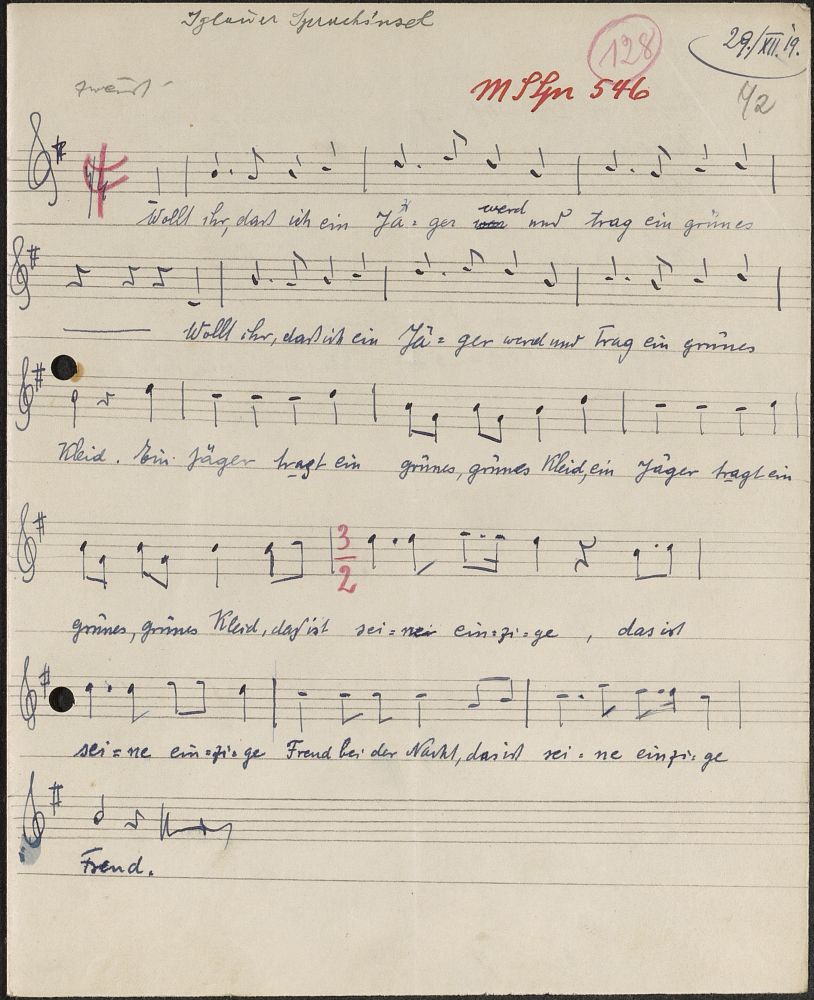 Iglauer Sprachinsel
128
29./XII.19.
MSpr 546
Wollt ihr, daß ich ein Jä = ger werd und trag ein grünes
Wollt ihr, daß ich ein Jä = ger werd und trag ein grünes
Kleid. Ein Jäger tragt ein grünes, grünes Kleid, ein Jäger tragt ein
3
2
grünes, grünes Kleid, das ist sei = ne ein=zi=ge, das ist
sei = ne ein=zi=ge Freud bei der Nacht, das ist sei = ne einzi=ge
Freud.